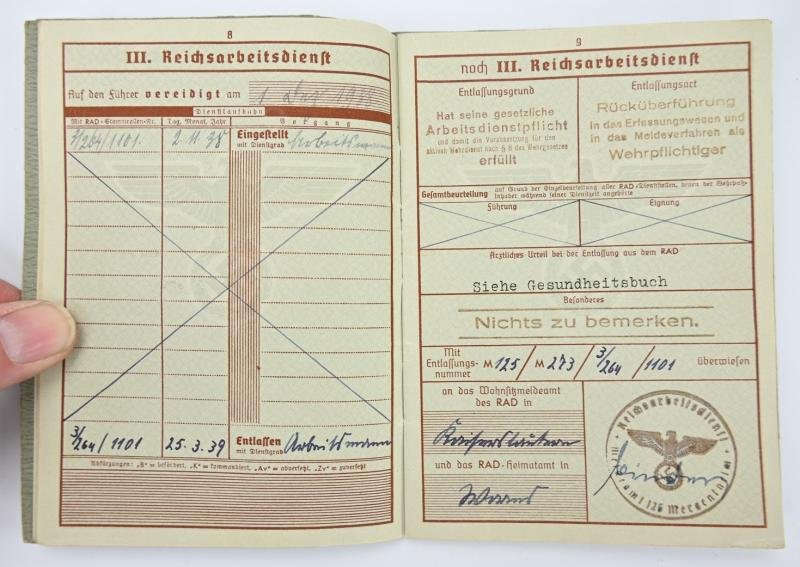 8
III. Reichsarbeitsdienst
Auf den Führer vereidigt am 1. Dez. 1938
Dienstlaufbahn
Mit RAD-Stammrollen-Nr. Tag, Monat, Jahr Vorgang
3/264/1101. 2.11.38 Eingestellt mit Dienstgrad: Arbeitsmann
3/264/1101 25.3.39 Entlassen mit Dienstgrad: Arbeitsmann
Abkürzungen: "B" = befördert, "K" = kommandiert, "Av" = abversetzt, "Zv" = zuversetzt
9
noch III. Reichsarbeitsdienst
Entlassungsgrund
Hat seine gesetzliche
Arbeitsdienstpflicht
und damit die Voraussetzung für den
aktiven Wehrdienst nach § 8 des Wehrgesetzes
erfüllt
Entlassungsart
Rücküberführung
in das Erfassungswesen und
in das Meldeverfahren als
Wehrpflichtiger
Gesamtbeurteilung auf Grund der Einzelbeurteilung aller RAD-Dienststellen, denen der Wehrpaß-
Inhaber während seiner Dienstzeit angehörte
Führung Eignung
Ärztliches Urteil bei der Entlassung aus dem RAD
Siehe Gesundheitsbuch
Besonderes
Nichts zu bemerken.
Mit Entlassungsnummer M 125/M 273/3/264/1101 überwiesen
an das Wohnsitzmeldeamt
des RAD in
Kaiserslautern
und das RAD-Heimatamt in
Worms
Reichsarbeitsdienst
126 Mergentheim